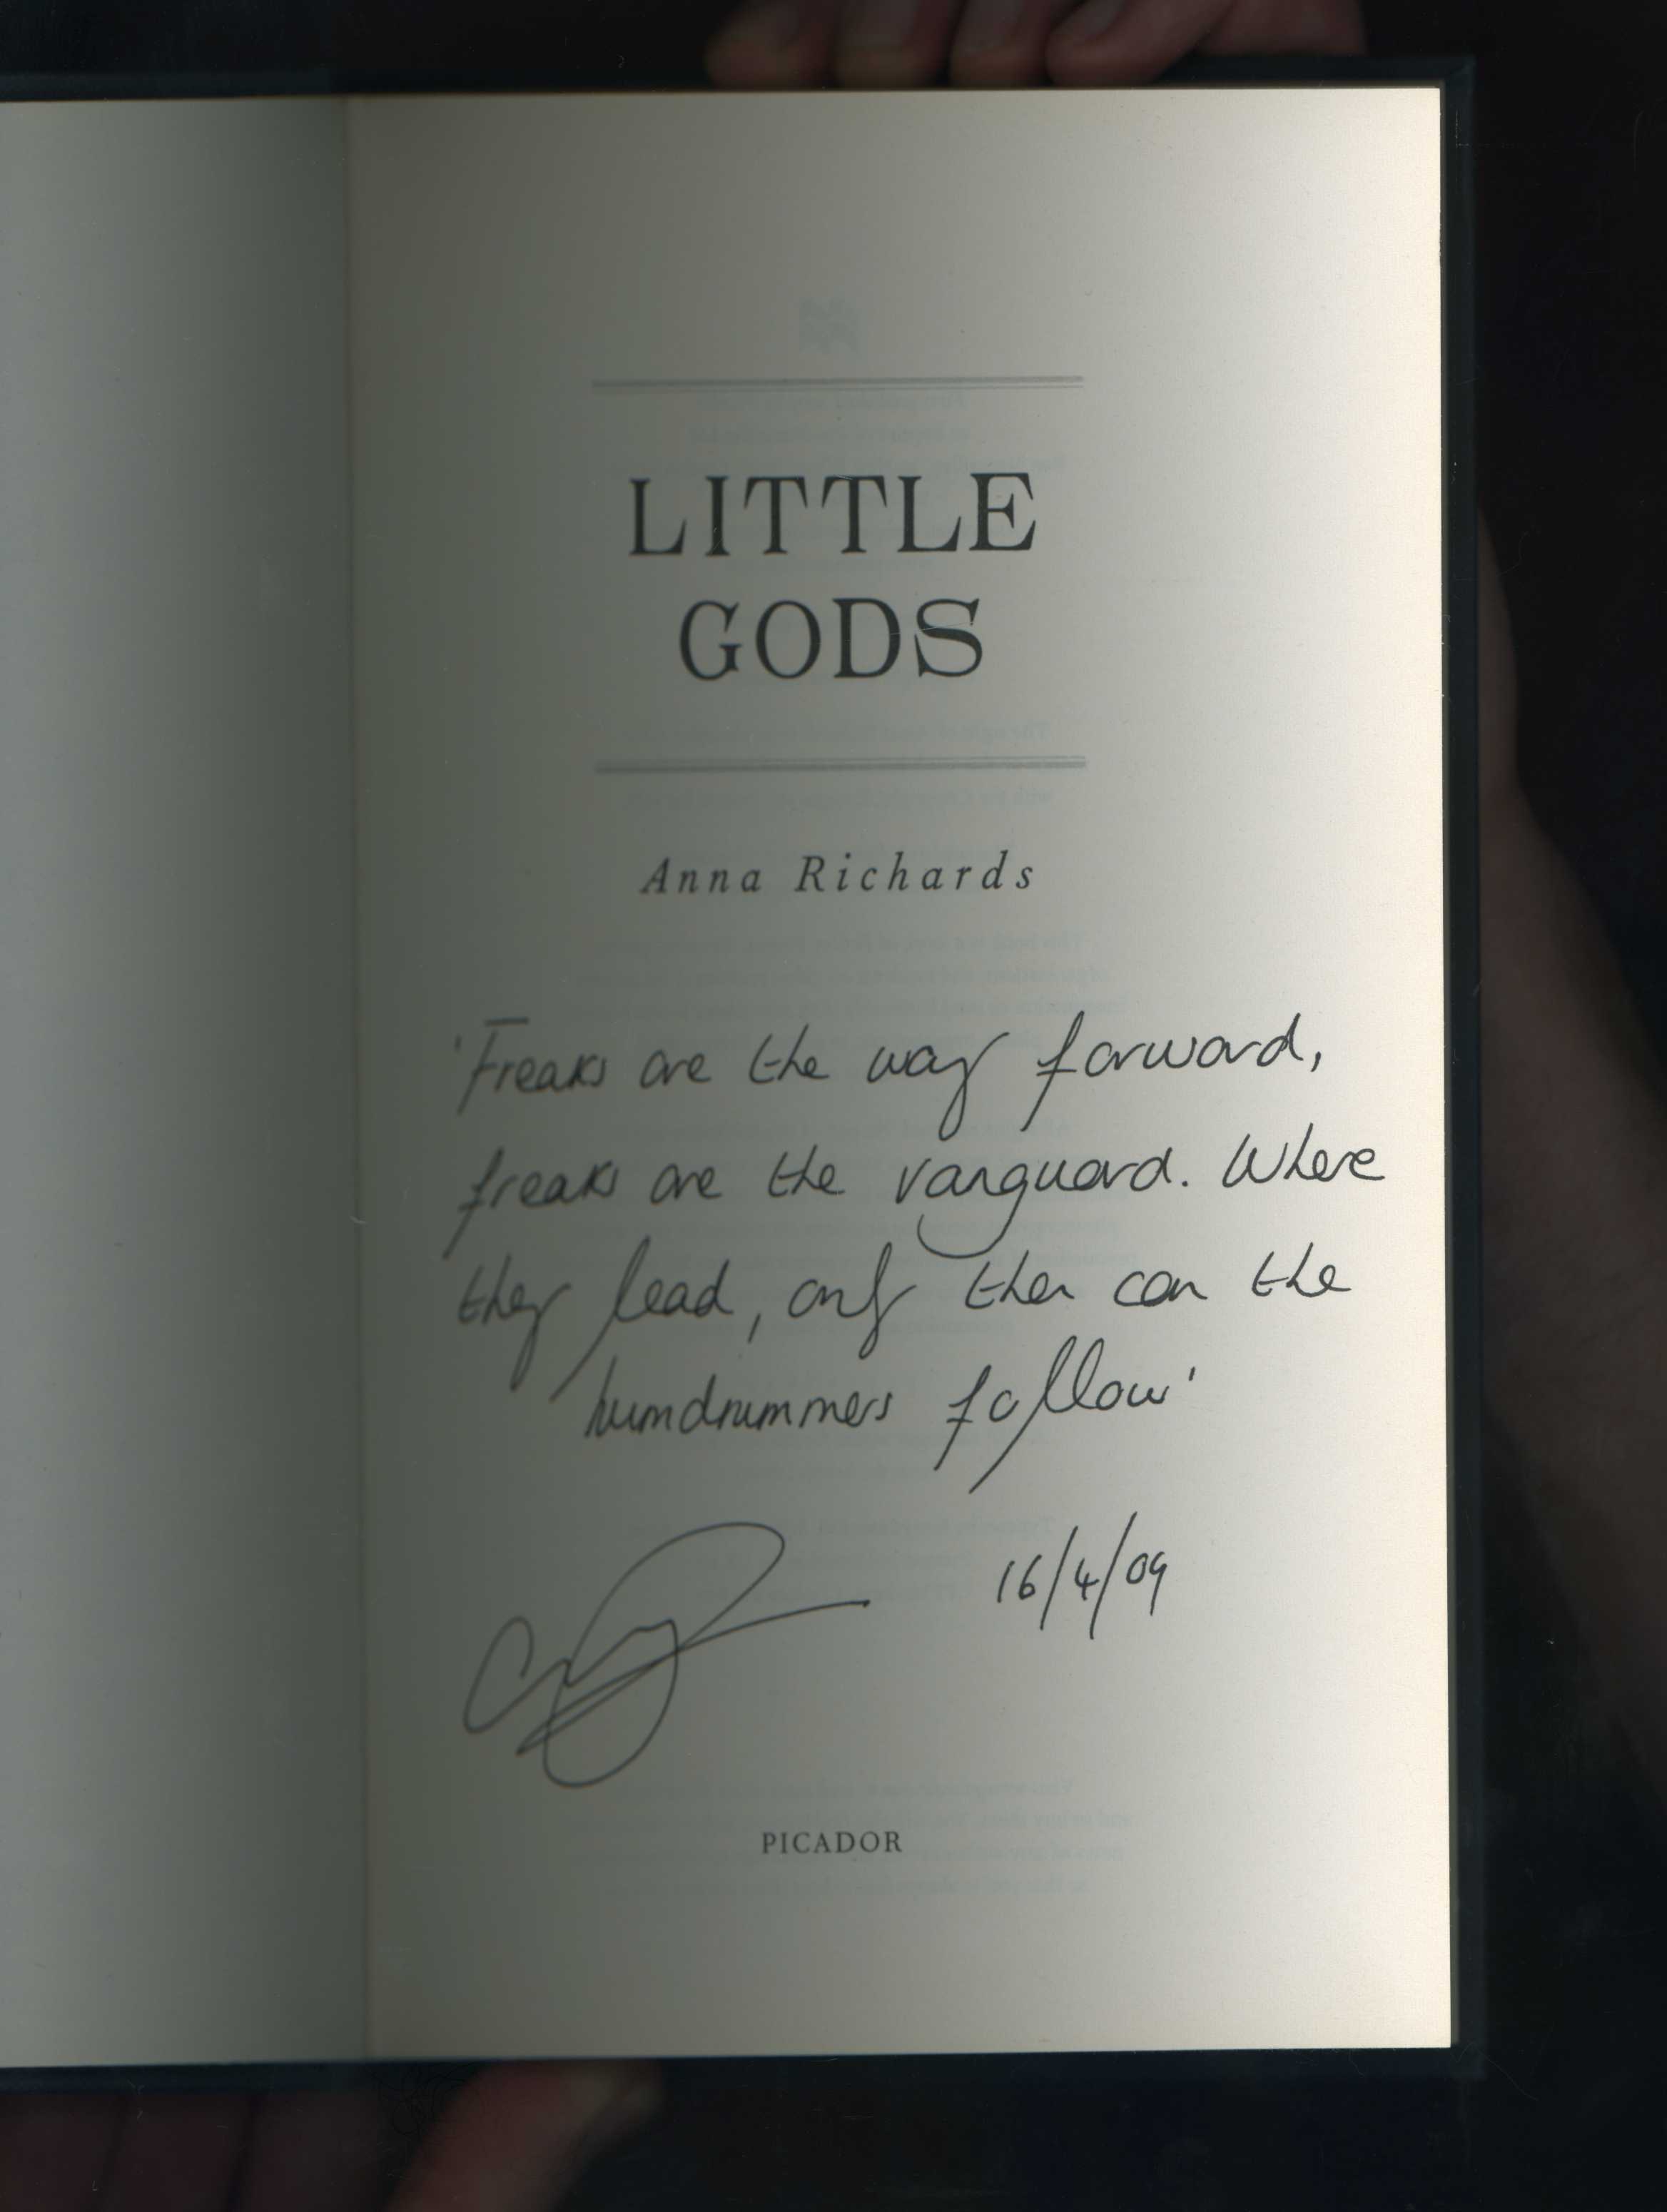 LITTLE
GODS
Anna Richards
'Freaks are the way forward,
freaks are the vanguard. Where
they lead, only then can the
humdrummers follow'
16/4/09
PICADOR